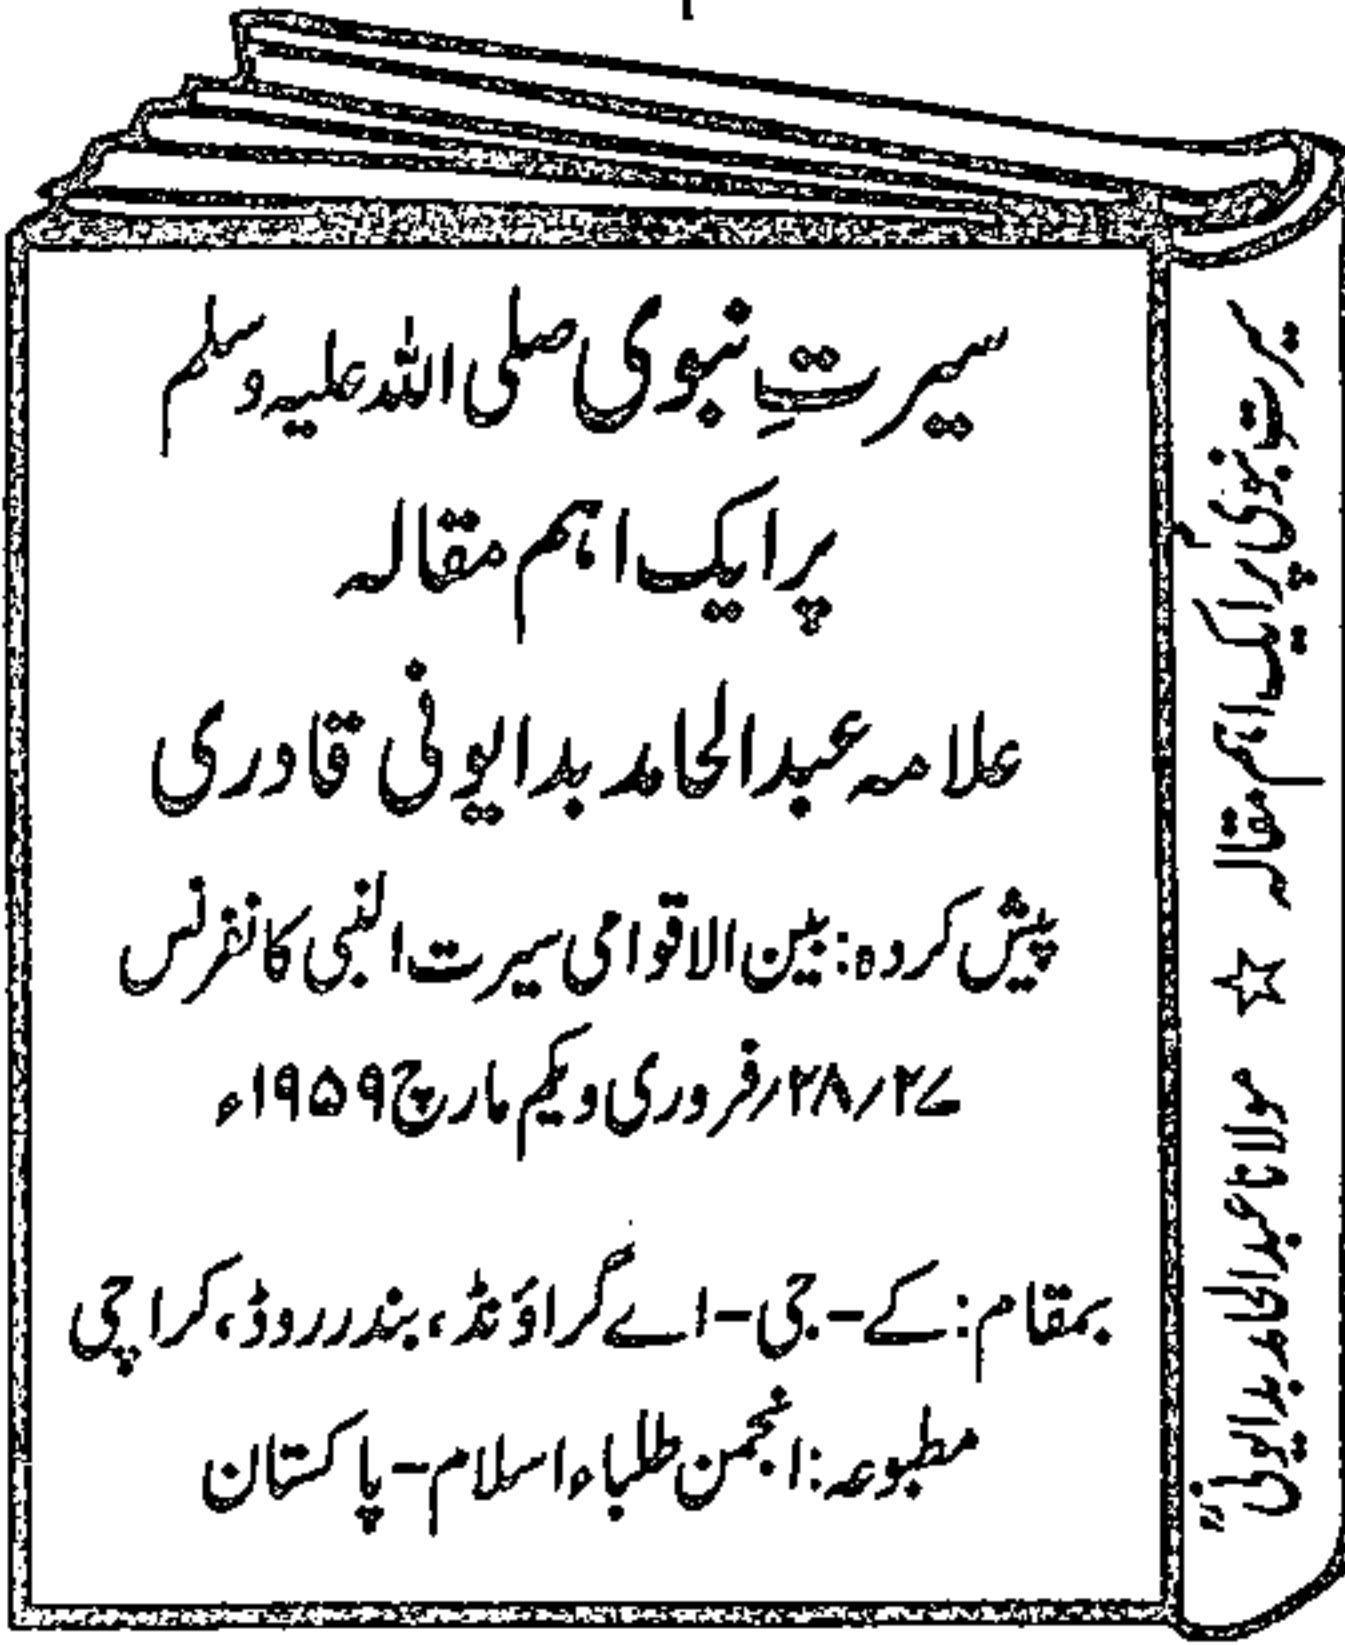 ۱
سیرتِ نبوی صلی اللہ علیہ وسلم
پر ایک اہم مقالہ
علامہ عبدالحامد بدایونی قادری
پیش کردہ: بین الاقوامی سیرت النبی کانفرنس
۲۷؍۲۸؍فروری ویکم مارچ ۱۹۵۹ء
بمقام: کے-جی-اے گراؤنڈ، بندر روڈ، کراچی
مطبوعہ: انجمن طلباء اسلام-پاکستان
سیرت نبویؐ پر ایک اہم مقالہ ☆ مولانا عبدالحامد بدایونیؒ